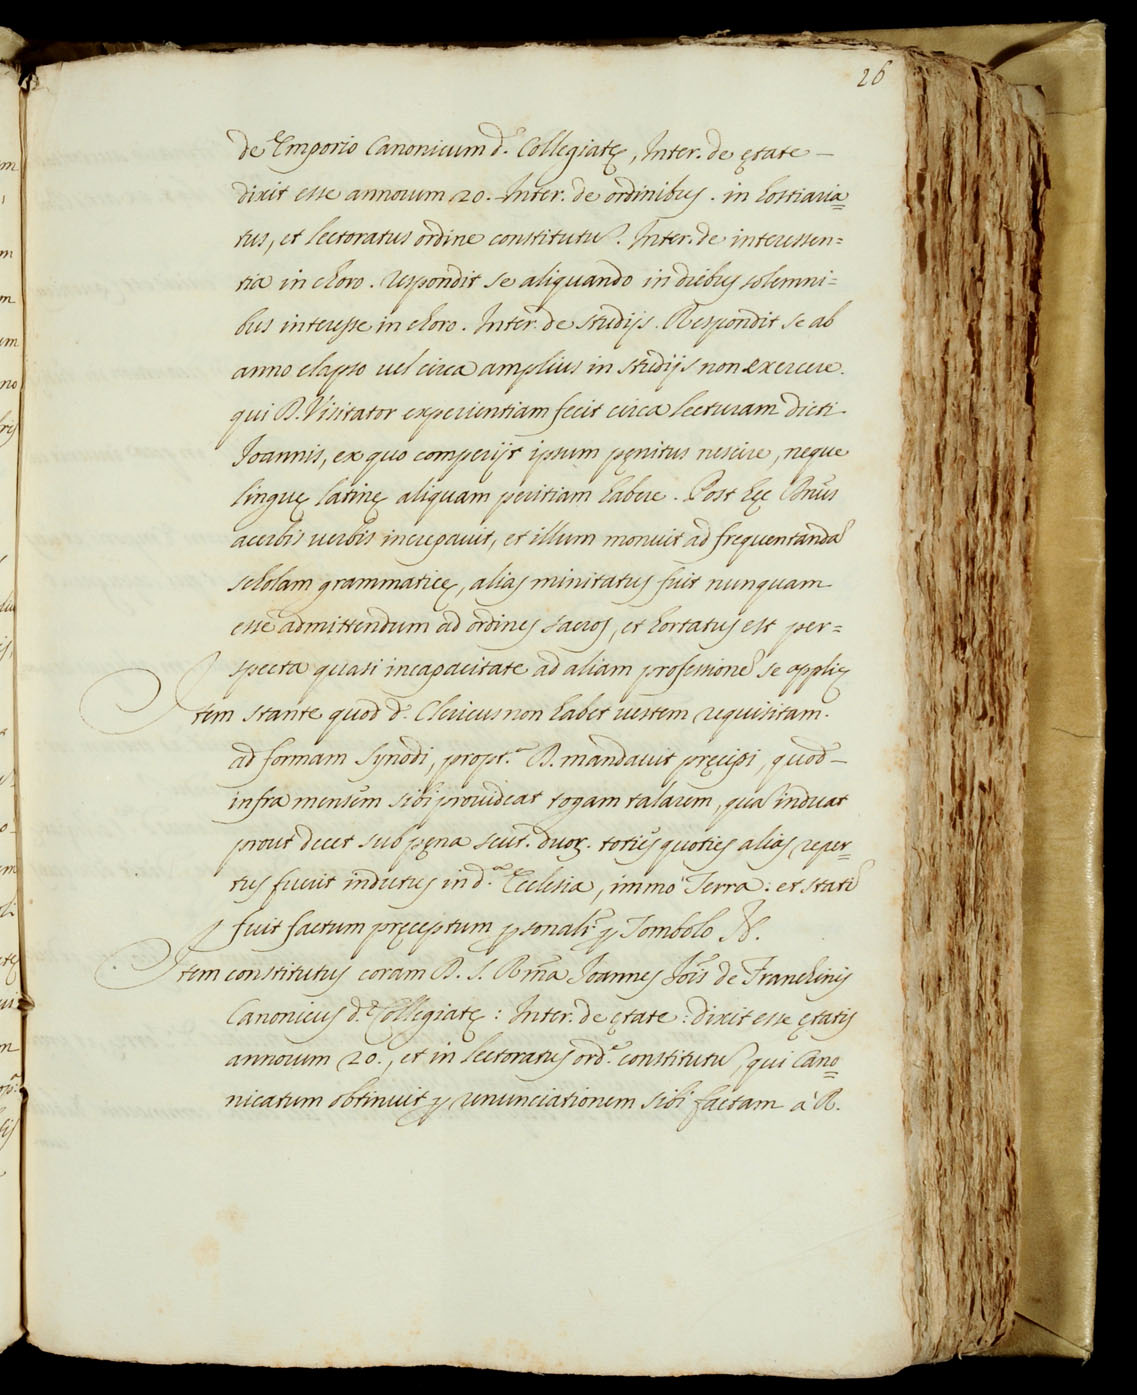 26
de Emporio Canonicum d.ᵉ Collegiatę, Inter. de ętate —
dixit esse annorum 20. Inter. de ordinibus. in hostiaria=
tus, et lectoratus ordine constitutũ. Inter. de interessen=
tia in choro. respondit se aliquando in diebus solemni=
bus interesse in choro. Inter. de studijs. Respondit se ab
anno elapso vel circa amplius in studijs non exercere.
qui R. Visitator experientiam fecit circa lecturam dicti
Joannis, ex quo comperijt ipsum pęnitus nescire, neque
linguę latinę aliquam peritiam habere. Post hęc
acerbis verbis increpavit, et illum monuit ad frequentandã
scholam grammaticę, alias minitatus fuit nunquam
esse admittendum ad ordines sacros, et hortatus est per=
specta quasi incapacitate ad aliam professionẽ se applicę
Item stante quod d.ˢ Clericus non habet vestem requisitam.
ad formam synodi, propt.ᵃ R. mandavit pręcipi, quod —
infra mensem sibi provideat togam talarem, quã induat
prout decet sub pęna scut. duoꝝ. toties quoties alias reper=
tus fuerit indutus in d.ᵃ Ecclesia, immo Terra: et statĩ
fuit factum pręceptum ꝑsonalr̃ ꝑ Tombolo N.
Item constitutus coram R. S. Rm̃a Joannes Jois̃ de Franchinis
Canonicus d.ᵉ Collegiatę: Inter. de ętate: dixit esse ętatis
annorum 20., et in lectoratus ord.ᵉ constitutũ, qui Cano=
nicatum obtinuit ꝑ renunciationem sibi factam à R.